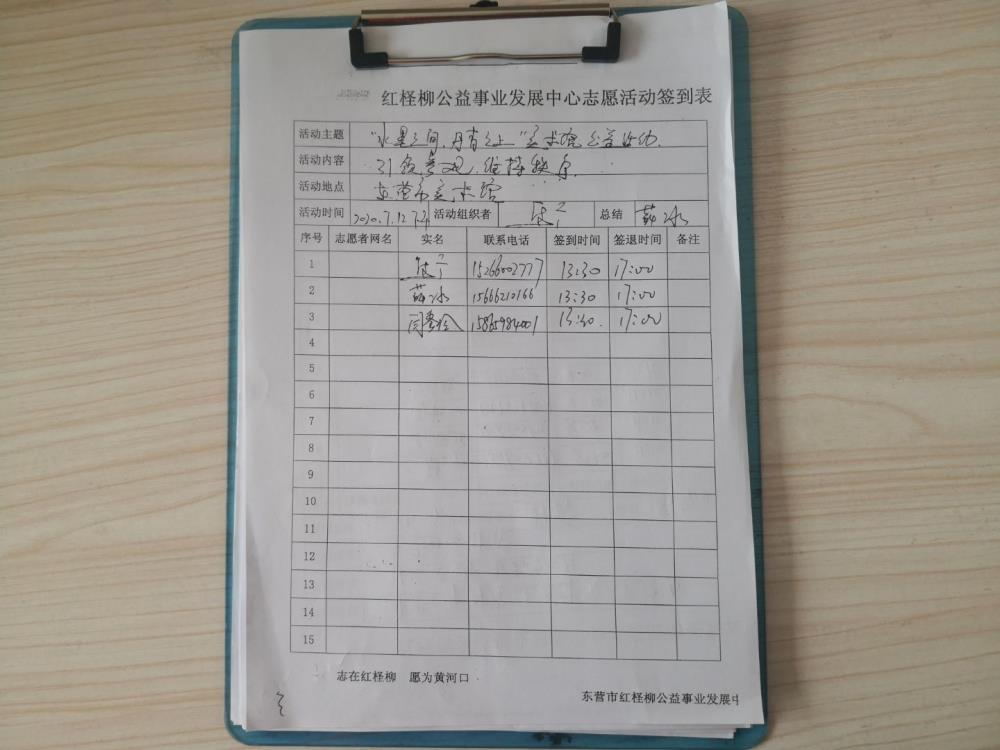 红柽柳公益事业发展中心志愿活动签到表
活动主题 "水墨之间,丹青之上"美术馆公益活动.
活动内容 引领参观,维持秩序.
活动地点 东营市美术馆
活动时间 2020.7.12 下午 活动组织者 总结 薛冰
序号 志愿者网名 实名 联系电话 签到时间 签退时间 备注
1 15266002777 13:30 17:00
2 薛冰 15666210166 13:30 17:00
3 15865984001 13:30. 17:00
4
5
6
7
8
9
10
11
12
13
14
15
志在红柽柳 愿为黄河口
东营市红柽柳公益事业发展中